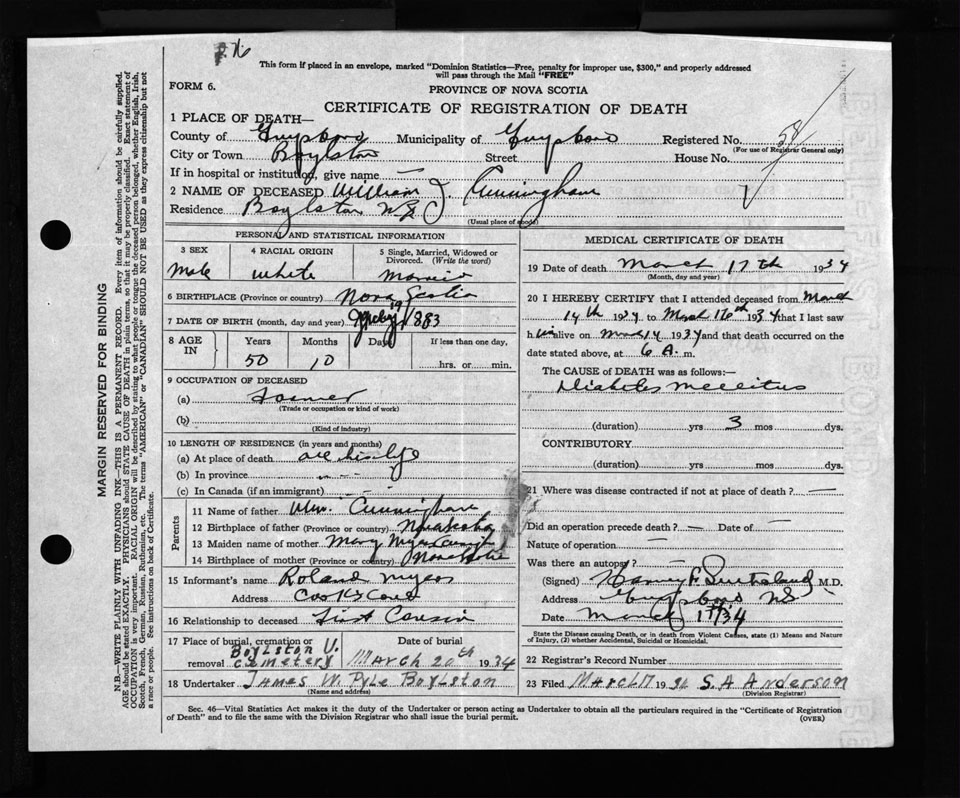 276
This form if placed in an envelope, marked "Dominion Statistics—Free, penalty for improper use, $300," and properly addressed
will pass through the Mail "FREE"
FORM 6.
PROVINCE OF NOVA SCOTIA
CERTIFICATE OF REGISTRATION OF DEATH
1 PLACE OF DEATH—
County of Guysboro Municipality of Guysboro Registered No. 58
(For use of Registrar General only)
City or Town Boylston Street House No.
If in hospital or institution, give name —
2 NAME OF DECEASED William J. Cunningham
Residence Boylston N.S.
(Usual place of abode)
PERSONAL AND STATISTICAL INFORMATION
3 SEX
Male
4 RACIAL ORIGIN
White
5 Single, Married, Widowed or
Divorced. (Write the word)
Married
6 BIRTHPLACE (Province or country) Nova Scotia
7 DATE OF BIRTH (month, day and year) 1883
8 AGE IN
Years Months Days If less than one day,
50 10
hrs. or min.
9 OCCUPATION OF DECEASED
(a) Farmer
(Trade or occupation or kind of work)
(b)
(Kind of industry)
10 LENGTH OF RESIDENCE (in years and months)
(a) At place of death all his life
(b) In province
(c) In Canada (if an immigrant)
Parents
11 Name of father Wm. Cunningham
12 Birthplace of father (Province or country) Nova Scotia
13 Maiden name of mother Mary Myers
14 Birthplace of mother (Province or country) Nova Scotia
15 Informant's name Roland Myers
Address Cooks Cove
16 Relationship to deceased First Cousin
17 Place of burial, cremation or
removal Boylston U. Cemetery
Date of burial
March 20th 1934
18 Undertaker James W. Pyle Boylston
(Name and address)
MEDICAL CERTIFICATE OF DEATH
19 Date of death March 17th 1934
(Month, day and year)
20 I HEREBY CERTIFY that I attended deceased from March
14th 1934 to March 1934 that I last saw
him alive on March 14 1934 and that death occurred on the
date stated above, at 6 A. m.
The CAUSE of DEATH was as follows:—
Diabetes Mellitus
(duration) yrs 3 mos dys.
CONTRIBUTORY
(duration) yrs mos dys.
21 Where was disease contracted if not at place of death? —
Did an operation precede death? — Date of —
Nature of operation —
Was there an autopsy? —
(Signed) Harvey F. Sutherland M.D.
Address Guysboro N.S.
Date March 17/34
State the Disease causing Death, or in death from Violent Causes, state (1) Means and Nature
of Injury, (2) whether Accidental, Suicidal or Homicidal.
22 Registrar's Record Number
23 Filed March 17 1934 S. A Anderson
(Division Registrar)
Sec. 46—Vital Statistics Act makes it the duty of the Undertaker or person acting as Undertaker to obtain all the particulars required in the "Certificate of Registration
of Death" and to file the same with the Division Registrar who shall issue the burial permit.
(OVER)
MARGIN RESERVED FOR BINDING
N.B.—WRITE PLAINLY WITH UNFADING INK—THIS IS A PERMANENT RECORD. Every item of information should be carefully supplied.
AGE should be stated EXACTLY. PHYSICIANS should STATE CAUSE OF DEATH in plain terms, so that it may be properly classified. Exact statement of
OCCUPATION is very important. RACIAL ORIGIN will be described by stating to what people or tongue the deceased person belonged, whether English, Irish,
Scotch, French, German, Russian, Ruthenian, etc. The terms "AMERICAN" or "CANADIAN" SHOULD NOT BE USED as they express citizenship but not
a race or people. See instructions on back of Certificate.